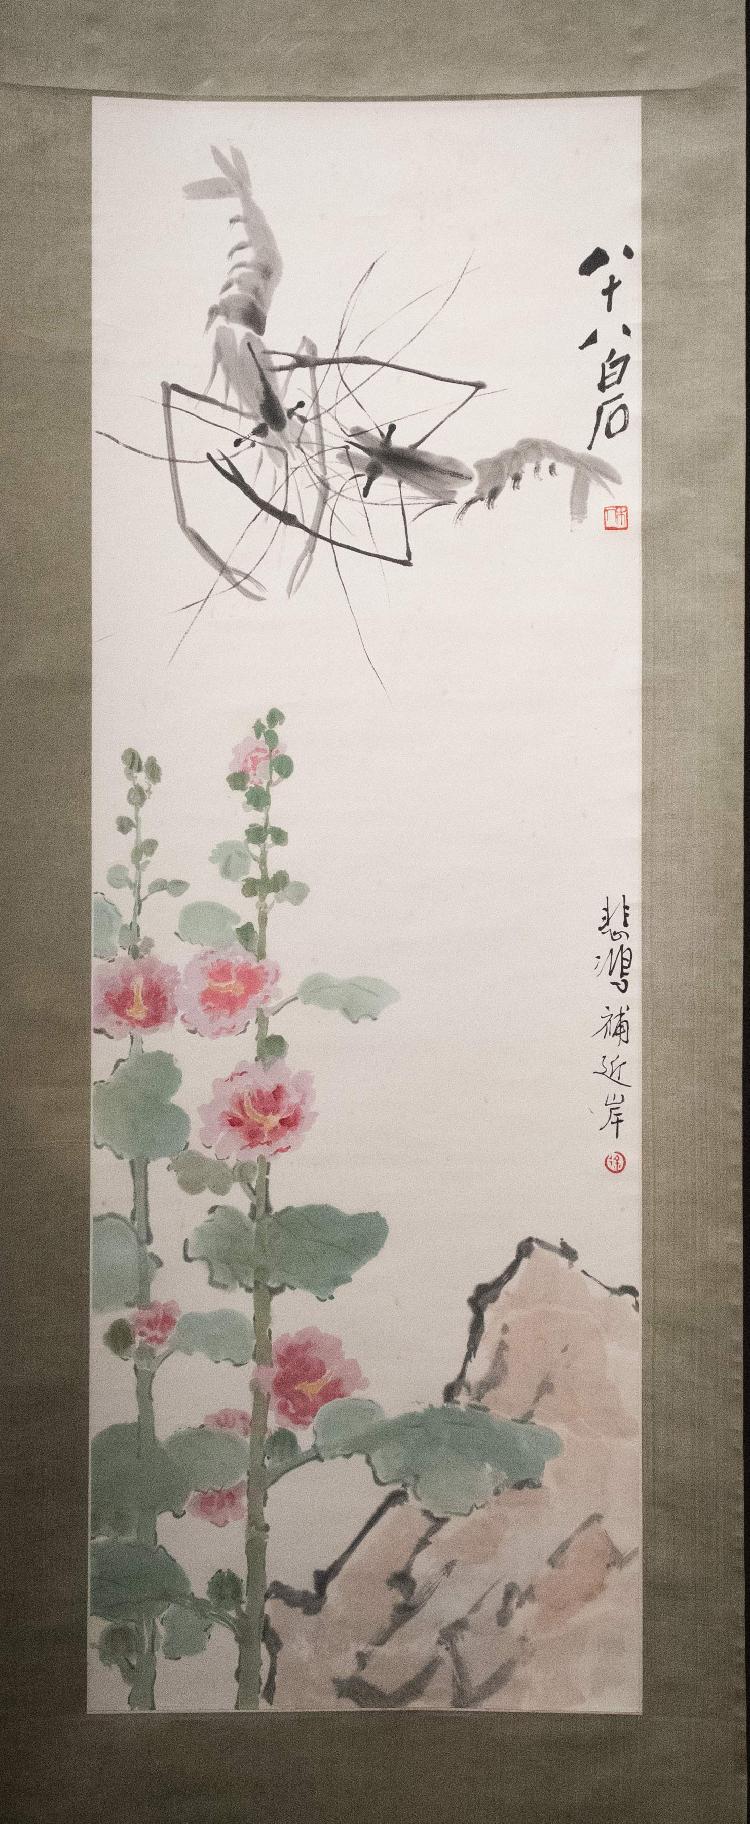 八十八白石
悲鸿補近岸
徐